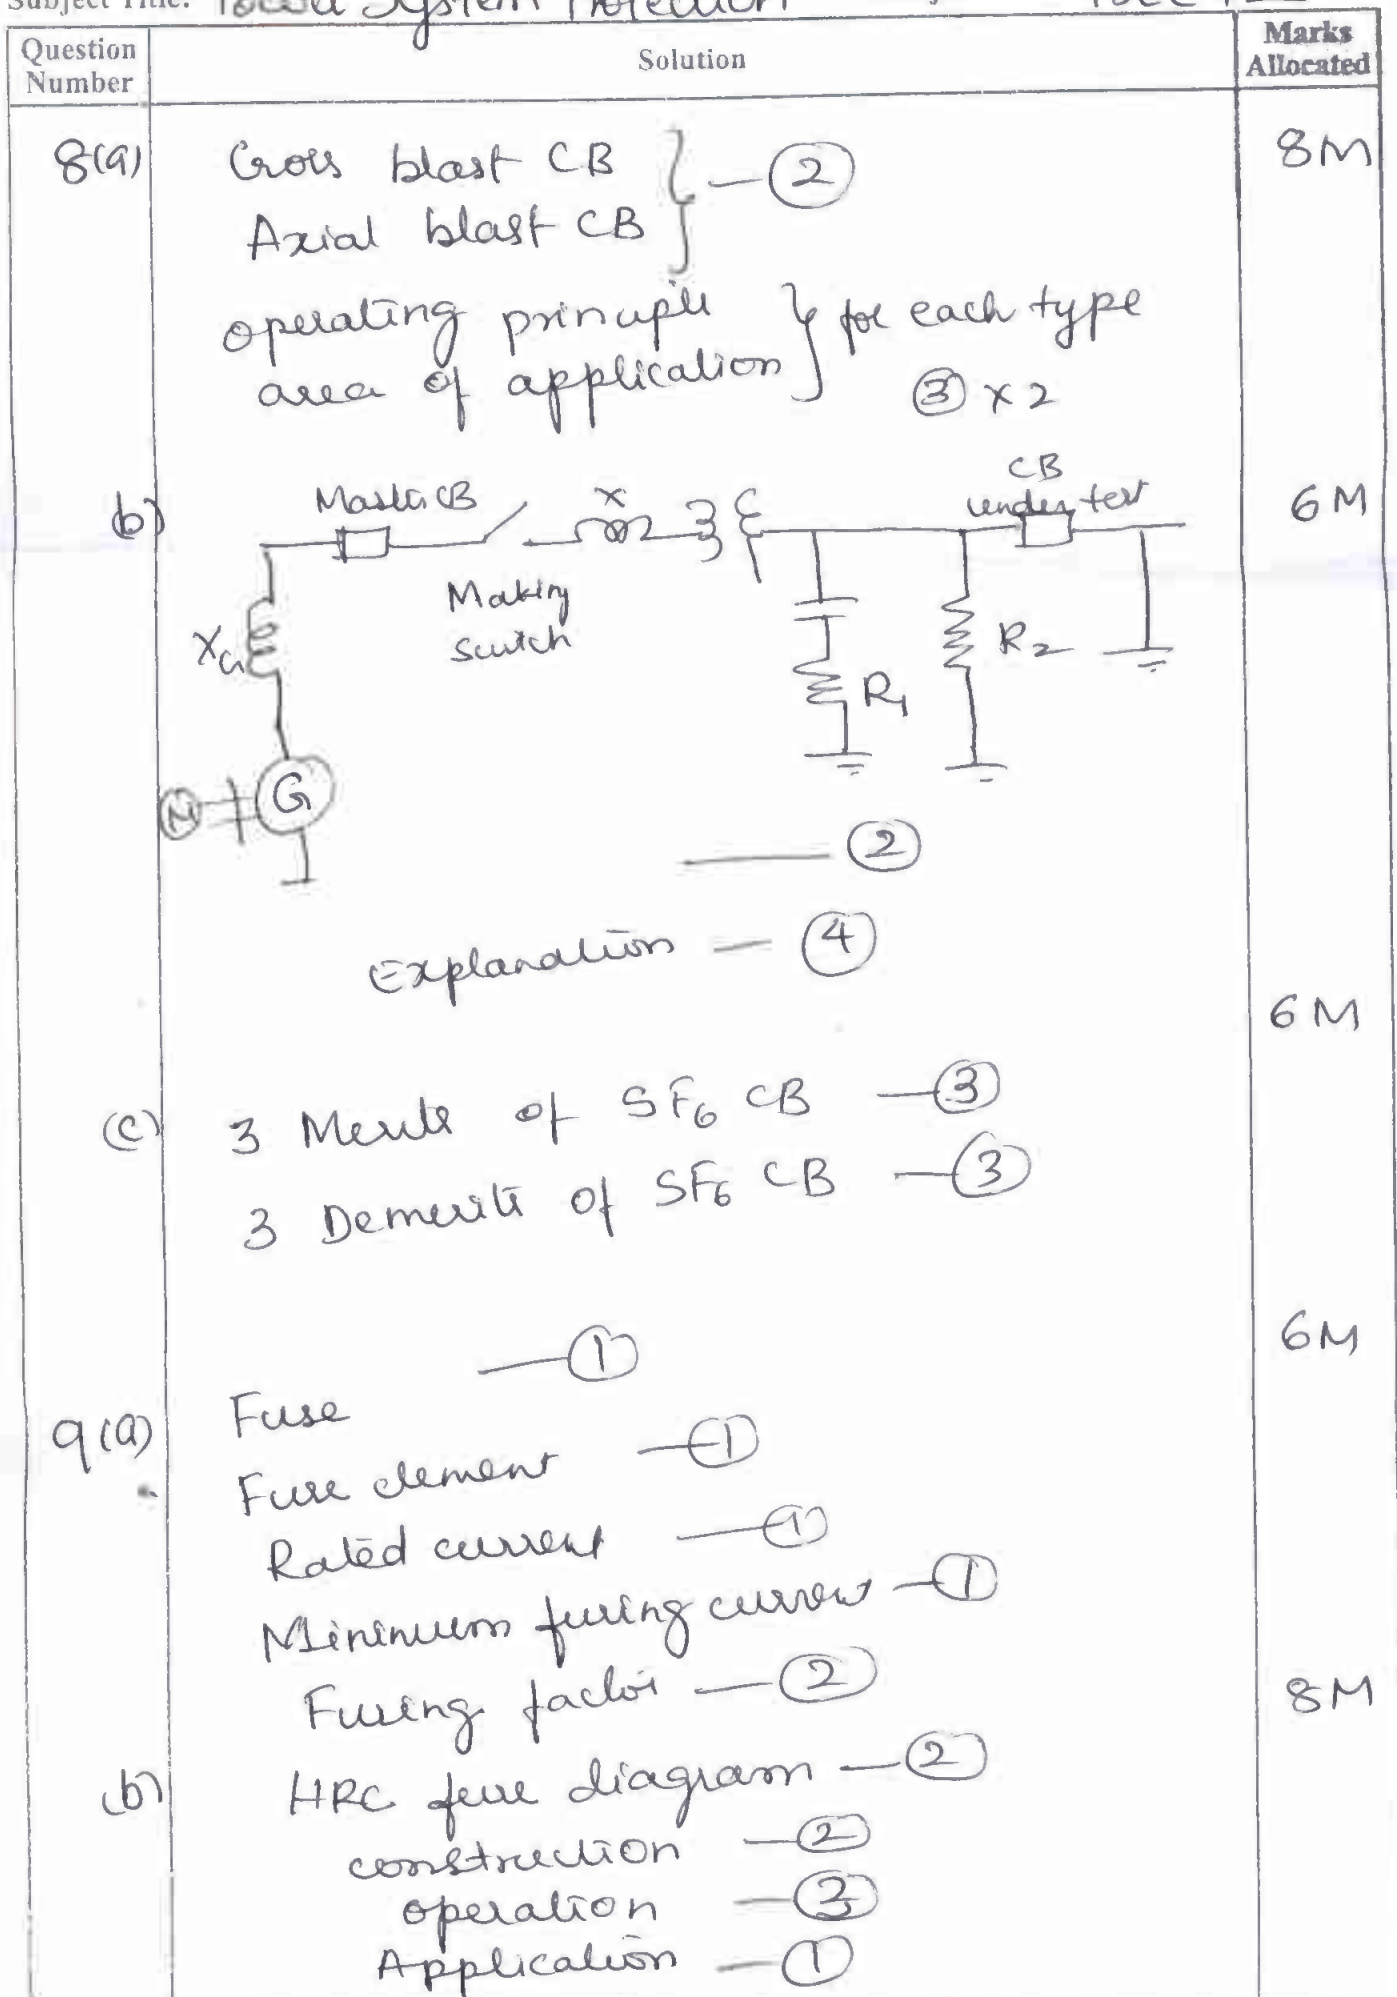 Subject Title: Power System Protection
Question Number
Solution
Marks Allocated
8(a) Cross blast CB 8M
Axial blast CB } — (2)
operating principle
area of application } for each type
(3) x 2
(b) Master CB x CB under test 6M
Making switch
XG R1 R2
M G
— (2)
Explanation — (4)
6M
(c) 3 Merits of SF6 CB — (3)
3 Demerits of SF6 CB — (3)
6M
9(a) Fuse — (1)
Fuse element — (1)
Rated current — (1)
Minimum fusing current — (1)
Fusing factor — (2)
8M
(b) HRC fuse diagram — (2)
construction — (2)
operation — (3)
Application — (1)